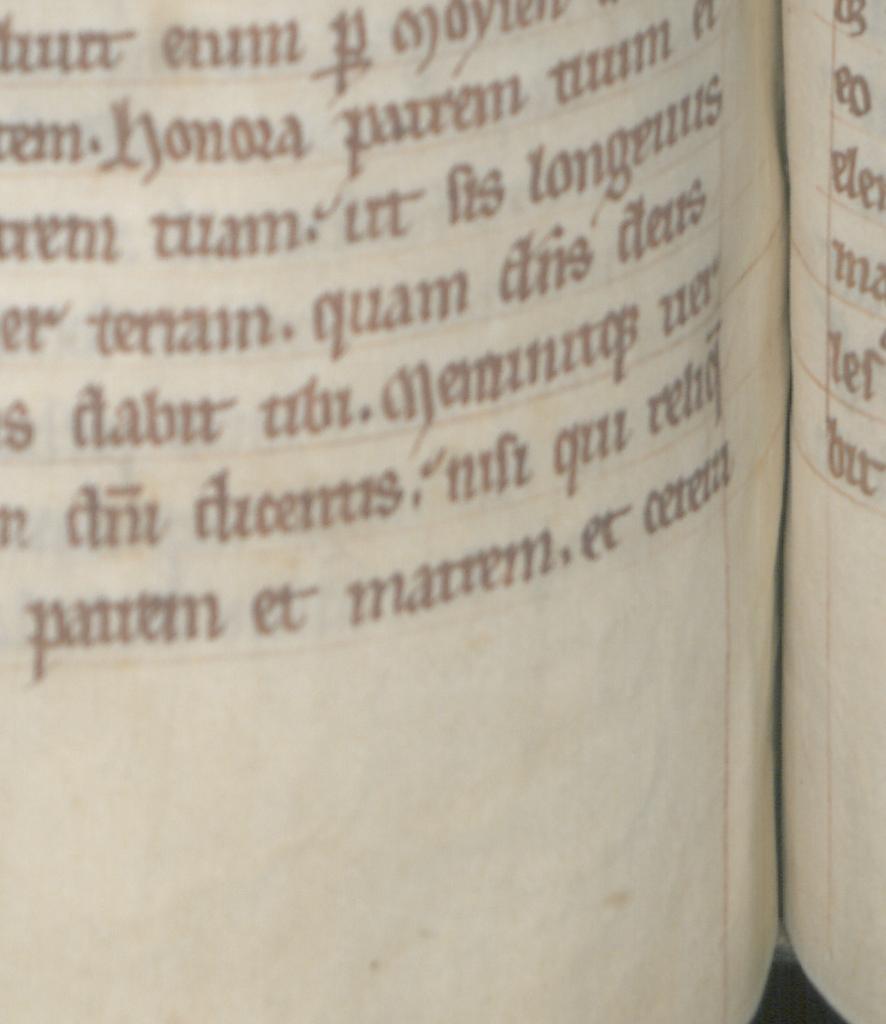 eum ꝑ moysen
tem. Honora patrem tuum et
trem tuam: ut sis longeuus
er terram. quam dn̄s deus
s dabit tibi. Meminitqꝫ uer
n dn̄i dicentis: nisi qui reliq̄
patrem et matrem. et cetera
eo
ma
bit